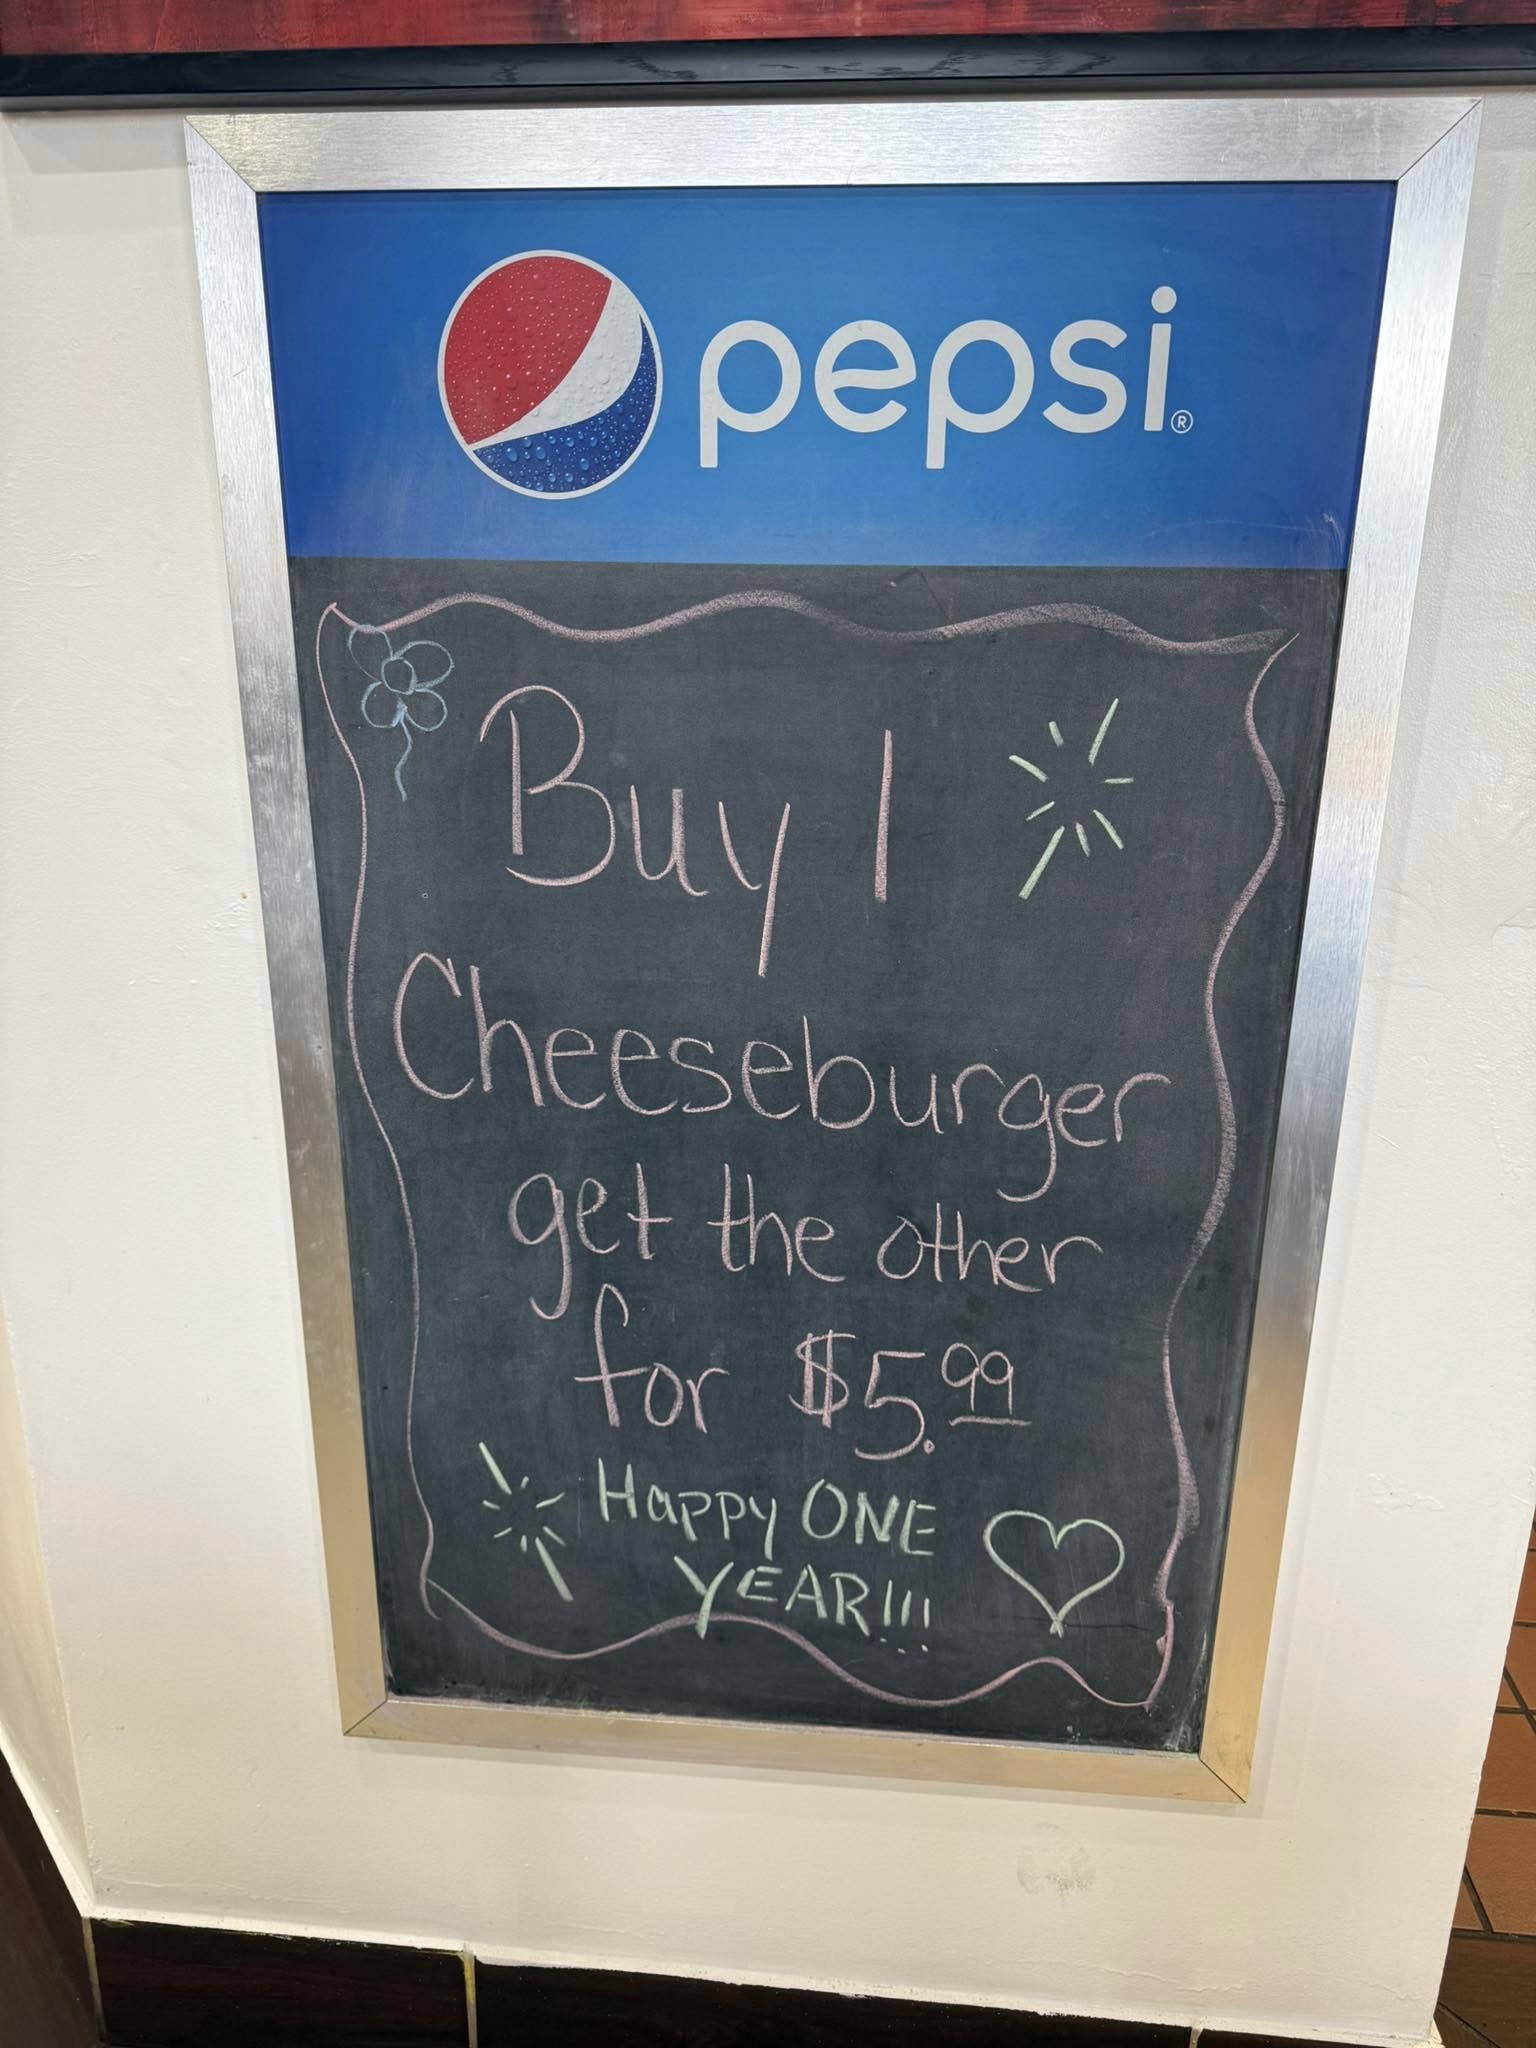 pepsi®
Buy 1
Cheeseburger
get the other
for $5.99
Happy ONE
YEAR!!!